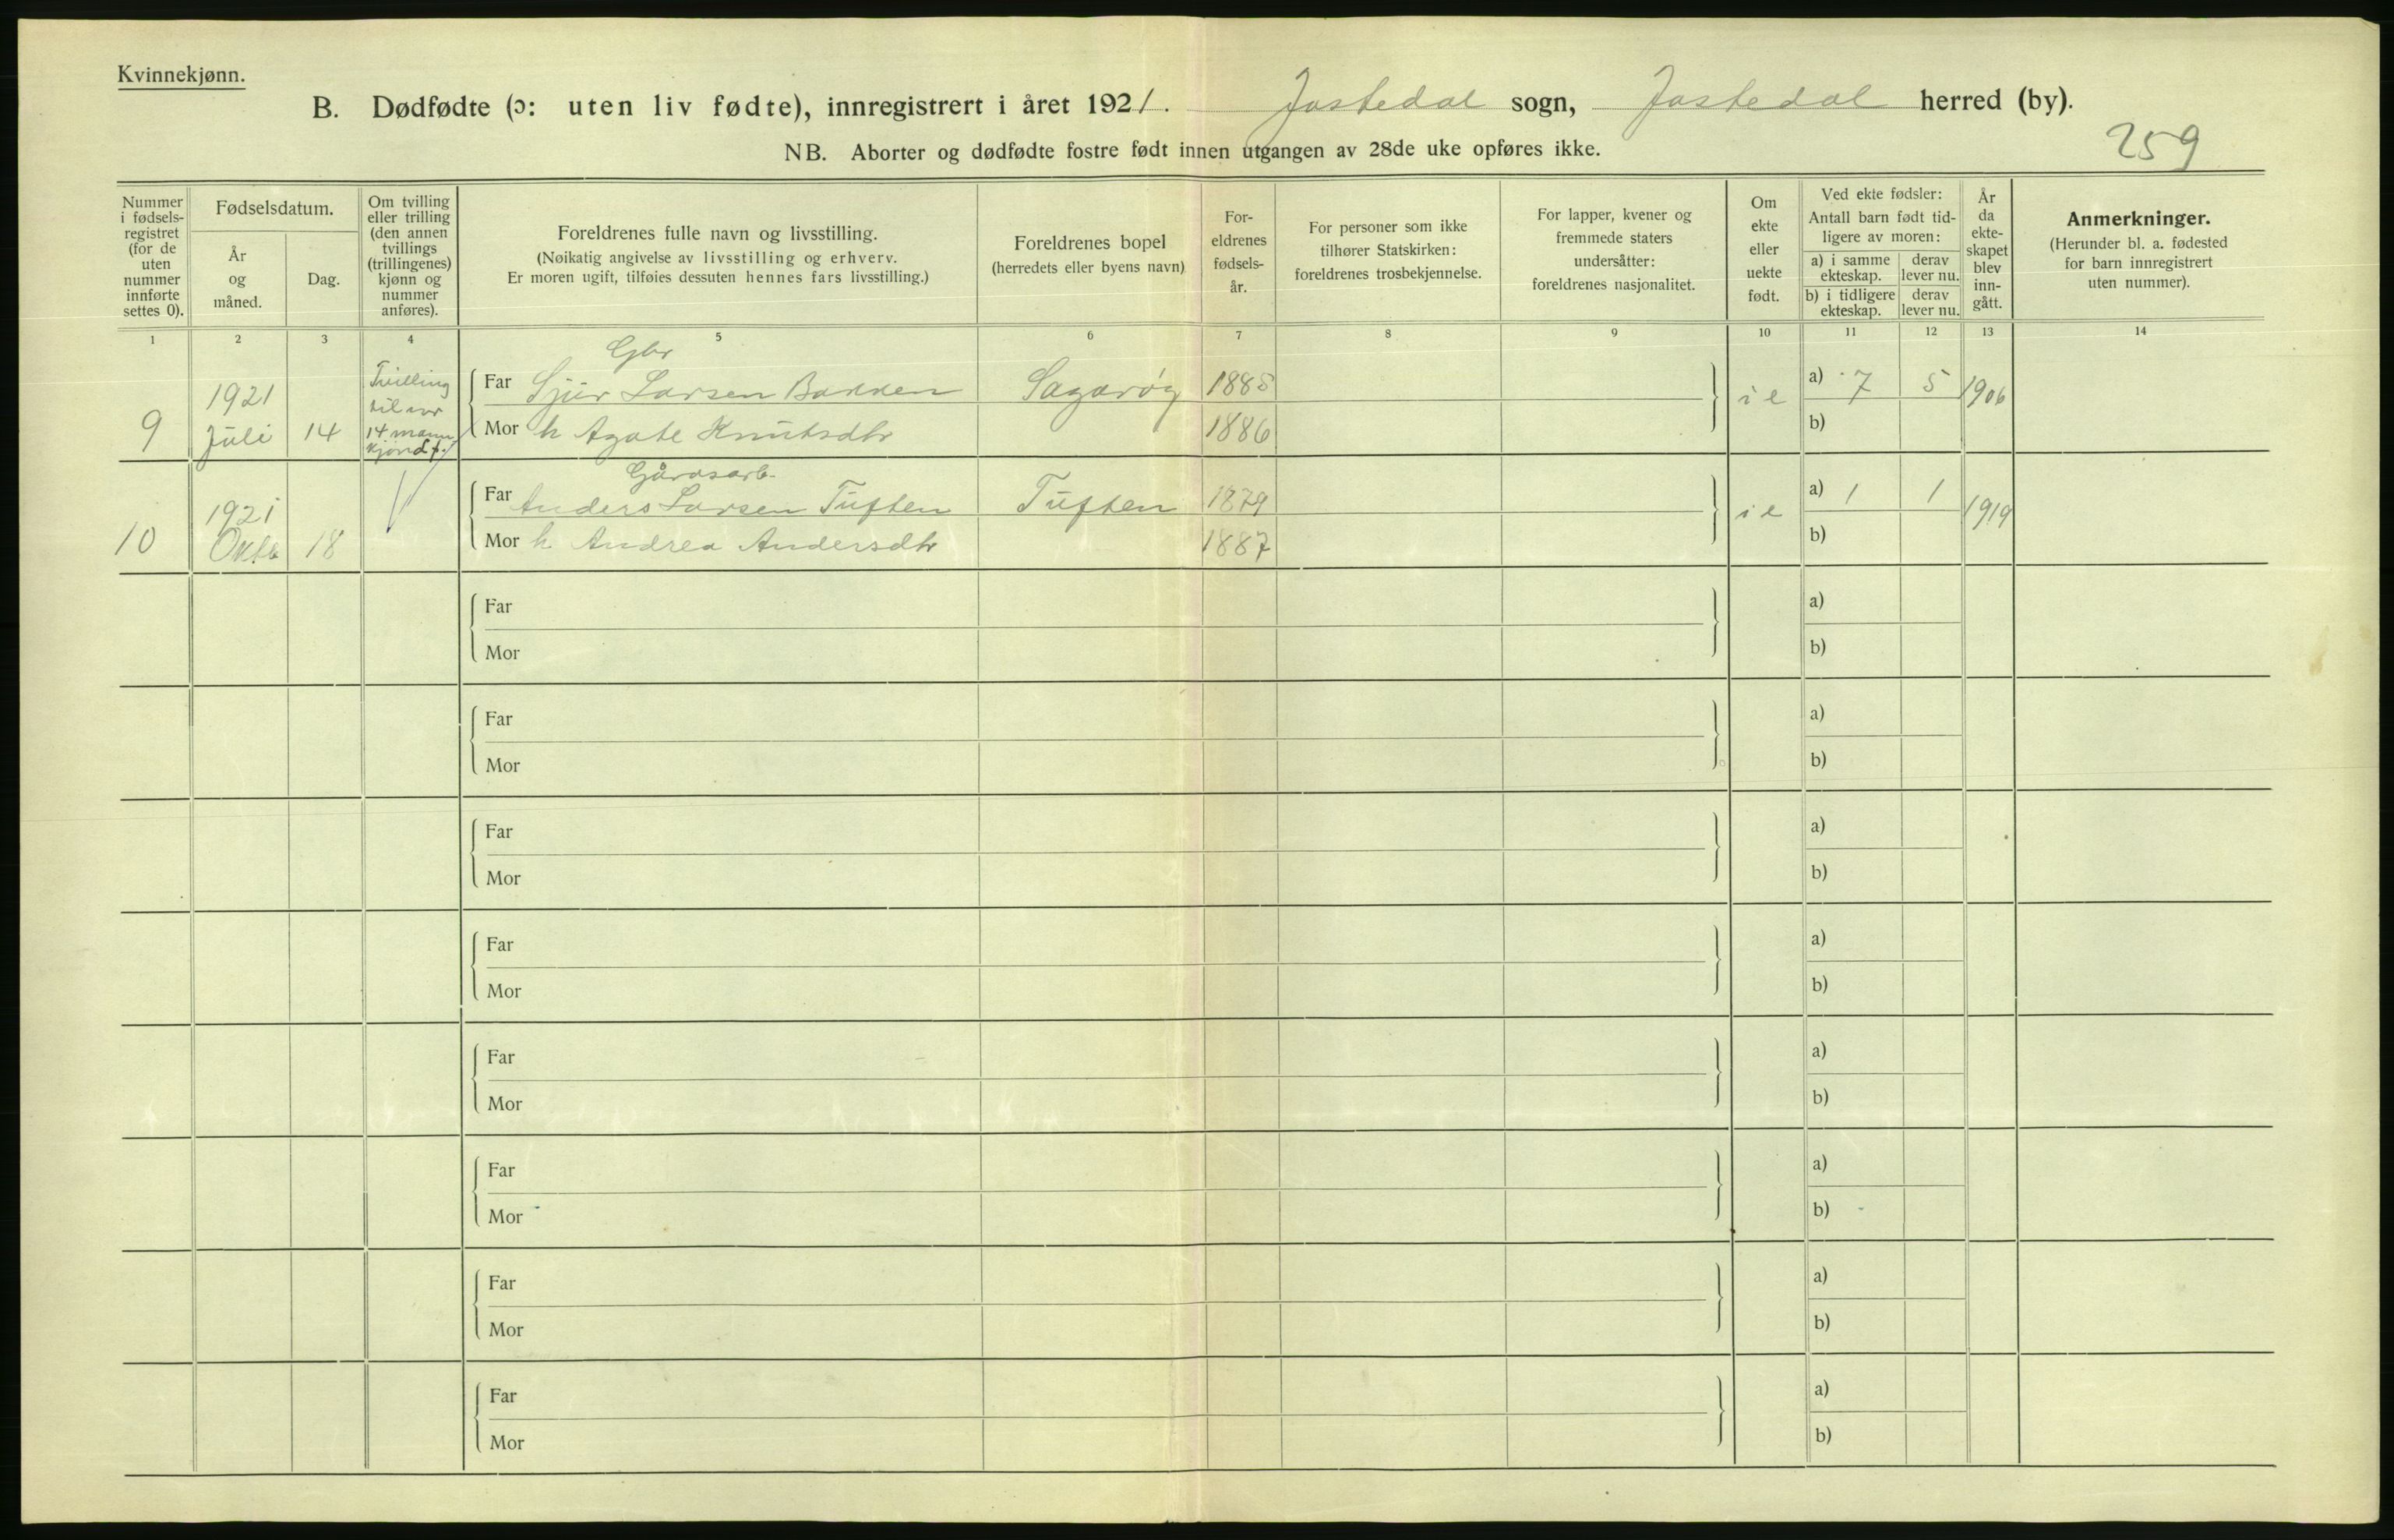 Kvinnekjønn.
B. Dødfødte (ɔ: uten liv fødte), innregistrert i året 1921. Jostedal sogn, Jostedal herred (by).
NB. Aborter og dødfødte fostre født innen utgangen av 28de uke opføres ikke.
259
Nummer
i fødsels-
registret
(for de
uten
nummer
innførte
settes 0).
Fødselsdatum.
År
og
måned.
Dag.
Om tvilling
eller trilling
(den annen
tvillings
(trillingenes)
kjønn og
nummer
anføres).
Foreldrenes fulle navn og livsstilling.
(Nøikatig angivelse av livsstilling og erhverv.
Er moren ugift, tilføies dessuten hennes fars livsstilling.)
Foreldrenes bopel
(herredets eller byens navn)
For-
eldrenes
fødsels-
år.
For personer som ikke
tilhører Statskirken:
foreldrenes trosbekjennelse.
For lapper, kvener og
fremmede staters
undersåtter:
foreldrenes nasjonalitet.
Om
ekte
eller
uekte
født.
Ved ekte fødsler:
Antall barn født tid-
ligere av moren:
a) i samme
ekteskap.
derav
lever nu.
b) i tidligere
ekteskap.
derav
lever nu.
År
da
ekte-
skapet
blev
inn-
gått.
Anmerkninger.
(Herunder bl. a. fødested
for barn innregistrert
uten nummer).
1 2 3 4 5 6 7 8 9 10 11 12 13 14
9
1921
Juli
14
Tvilling
til nr
14 mann
kjønd f.
Gbr
Far Sjur Larsen Bakken
Sagarøy
1885
Mor h Agate Knutsdtr
1886
i e
a) 7 5
b)
1906
10
1921
Oktb
18
Gårdsarb.
Far Anders Larsen Tuften
Tuften
1879
Mor h Andrea Andersdtr
1887
i e
a) 1 1
b)
1919
Far a)
Mor b)
Far a)
Mor b)
Far a)
Mor b)
Far a)
Mor b)
Far a)
Mor b)
Far a)
Mor b)
Far a)
Mor b)
Far a)
Mor b)